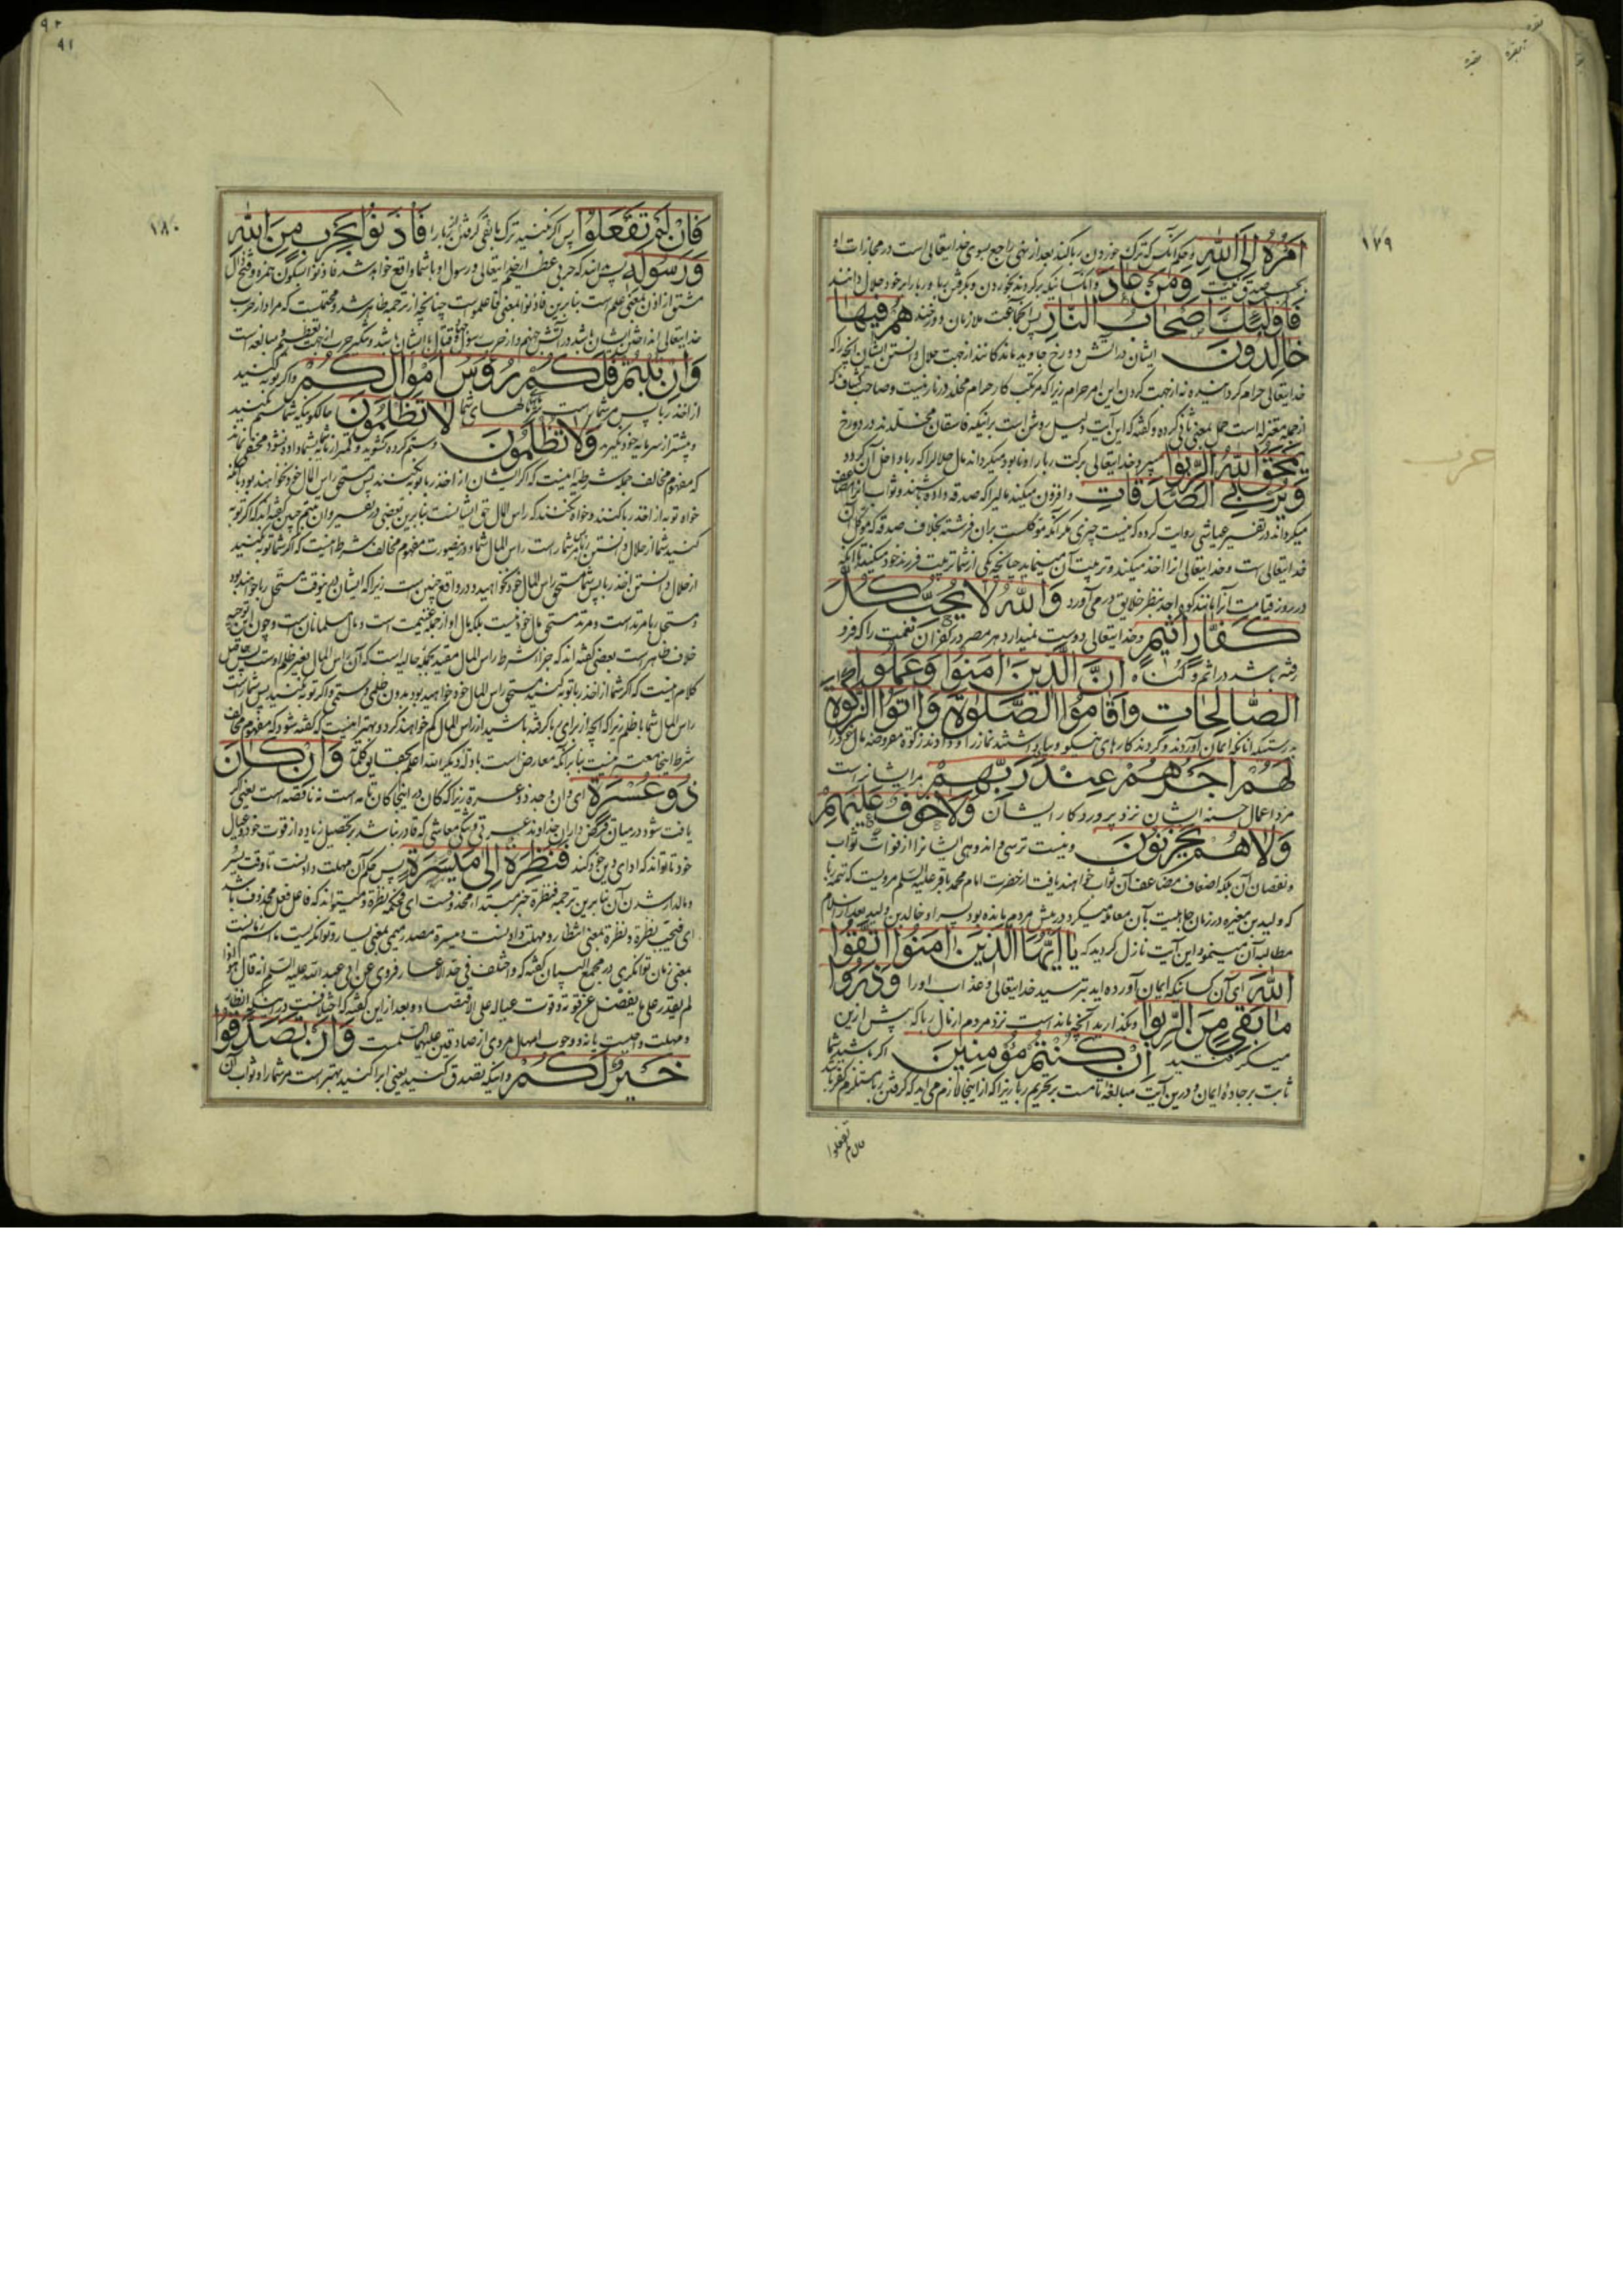 ١٧٩
امره الی الله و حکم آنکه ترک خوردن ربا کند بعد از نهی راجع بسوی خدایتعالی است در مجازات او
بحسب صدق نیت ومن عاد و آنانکه برگردند بخوردن و بگرفتن ربا و ربا را بر خود حلال دانند
فاولئک اصحاب النار پس آنجماعت ملازمان دوزخند هم فیها
خالدون ایشان در آتش دوزخ جاوید ماندگانند از جهت حلال دانستن ایشان آنچه را که
خدایتعالی حرام گردانیده نه از جهت کردن این امر حرام زیرا که مرتکب کار حرام مخلد در نار نیست و صاحب کشاف که
از جمله معتزله است حمل بمعنی ثانی کرده و گفته که این آیت دلیل روشن است بر اینکه فاسقان مخلدند در دوزخ
یمحق الله الربوا میبرد خدایتعالی برکت ربا را و نابود میگرداند مال حلالرا که ربا داخل آن گردد
ویربی الصدقات و افزون میکند مالیرا که صدقه داده باشند و ثواب آنرا مضاعف
میگرداند در تفسیر عیاشی روایت کرده که نیست چیزی مگر آنکه موکلست بر آن فرشته بخلاف صدقه که موکل آن
خدایتعالی است و خدایتعالی آنرا اخذ میکند و تربیت آن مینماید چنانچه یکی از شما تربیت فرزند خود میکند تا آنکه
در روز قیامت آنرا مانند کوه احد بنظر خلایق در می آورد والله لا یحب کل
کفار اثیم و خدایتعالی دوست نمیدارد هر مصر در کفران نعمت را که فرو
رفته باشد در اثم و گناه ان الذین امنوا وعملوا
الصالحات واقاموا الصلوة واتوا الزکوة
بدرستیکه آنانکه ایمان آوردند و کردند کارهای نیکو و بپا داشتند نماز را و دادند زکوة مفروضه مال خود را
لهم اجرهم عند ربهم مر ایشانراست
مزد اعمال حسنه ایشان نزد پروردگار ایشان ولا خوف علیهم
ولا هم یحزنون و نیست ترسی و اندوهی ایشانرا از فوات ثواب
و نقصان آن بلکه اضعاف مضاعف آن ثواب خواهند یافت از حضرت امام محمد باقر علیه السلم مرویست که
که ولید بن مغیره در زمان جاهلیت بآن معامله میکرد در پیش مردم مانده بود پسر او خالد بن ولید بعد از اسلام
مطالبه آن مینمود این آیت نازل گردید که یا ایها الذین امنوا اتقوا
الله ای آن کسانیکه ایمان آورده اید بترسید خدایتعالی و عذاب او را وذروا
ما بقی من الربوا و بگذارید آنچه مانده است نزد مردم از مال ربا که پیش ازین
میگرفتید ان کنتم مؤمنین اگر باشید شما
ثابت بر جاده ایمان و درین آیت مبالغه تامست بر تحریم ربا زیرا که از اینجا لازم می آید که گرفتن ربا مستلزم کفر باشد
فان لم تفعلوا
١٨٠
فان لم تفعلوا پس اگر نکنید ترک ما بقی گرفتن ربا را فاذنوا بحرب من الله
ورسوله پس بدانید که حربی عظیم از خدایتعالی و رسول او با شما واقع خواهد شد فاذنوا بسکون همزه و فتح ذال
مشتق از اذن بمعنی علم است بنابرین فاذنوا بمعنی فاعلموا است چنانچه از ترجمه ظاهر شد و محتملست که مراد از حرب
خدایتعالی انداختن ایشان باشد در آتش جهنم و از حرب رسول قتال با ایشان باشد و تنکیر حرب از جهت تعظیم و مبالغه است
وان تبتم فلکم رؤس اموالکم و اگر توبه کنید
از اخذ ربا پس مر شما راست سر مالهای شما لا تظلمون حالکونیکه شما ستم نکنید
و بیشتر از سرمایه خود نگیرید ولا تظلمون و ستم کرده نشوید و کمتر از مایه شما بشما داده نشود مخفی نماند
که مفهوم مخالف جمله شرطیه اینست که اگر ایشان از اخذ ربا توبه نکنند پس مستحق راس المال خود نخواهند بود بلکه
خواه توبه از اخذ ربا کنند و خواه نکنند که راس المال حق ایشانست بنابرین بعضی در تفسیر وان تبتم چنین گفته اند که اگر توبه
کنید شما از حلال دانستن ربا مر شما راست راس المال شما و درینصورت مفهوم مخالف شرط اینست که اگر شما توبه نکنید
از حلال دانستن اخذ ربا پس شما مستحق راس المال خود نخواهید بود و در واقع چنین است زیرا که ایشان درینوقت مستحل ربا خواهند بود
و مستحل ربا مرتد است و مرتد مستحق مال خود نیست بلکه مال او از جمله غنیمت است و مال مسلمانان است و چون این توجیه
خلاف ظاهر است بعضی گفته اند که جزا شرط راس المال مقید بجمله حالیه است که آن راس المال بغیر ظلم و ستم پس حاصل
کلام اینست که اگر شما از اخذ ربا توبه کنید مستحق راس المال خود خواهید بود بدون ظلمی و ستمی و اگر توبه نکنید پس شما راست
راس المال شما با ظلم زیرا که آنچه از برای ربا گرفته باشید از راس المال کم خواهند کرد و بهتر اینست که گفته شود که مفهوم مخالف
شرط اینجا معتبر نیست بنا بر آنکه معارض است بادله دیگر الله اعلم بحقایق کلامه وان کان
ذو عسرة ای وان وجد ذو عسرة زیرا که کان در اینجا کان تامه است نه ناقصه است یعنی اگر
یافت شود در میان قرض داران خداوند عسرتی و تنگی معاشی که قادر نباشد بر تحصیل زیاده از قوت خود و عیال
خود تا تواند که ادای دین خود کند فنظرة الی میسرة پس حکم آن مهلت دادنست تا وقت یسر
و مالدار شدن آن بنابرین ترجمه فنظرة خبر مبتداء محذوفست ای فحکمه نظرة و میتواند که فاعل فعل محذوف باشد
ای فتجب نظرة و نظرة بمعنی انتظار و مهلت دادنست و میسرة مصدر میمی بمعنی یسار و توانگریست یا اسم زمانست
بمعنی زمان توانگری در مجمع البیان گفته که واختلف فی حد الاعسار فروی عن ابی عبد الله علیه السلم انه قال هو اذا
لم یقدر علی ما یفضل عن قوته وقوت عیاله علی الاقتصاد و بعد از این گفته که اختلافست در اینکه انظار
و مهلت واجبست یا نه و وجوب امهال مروی از صادقین علیهما السلمست وان تصدقوا
خیر لکم و اینکه تصدق کنید یعنی ابرا کنید بهتر است مر شما را و ثواب آن